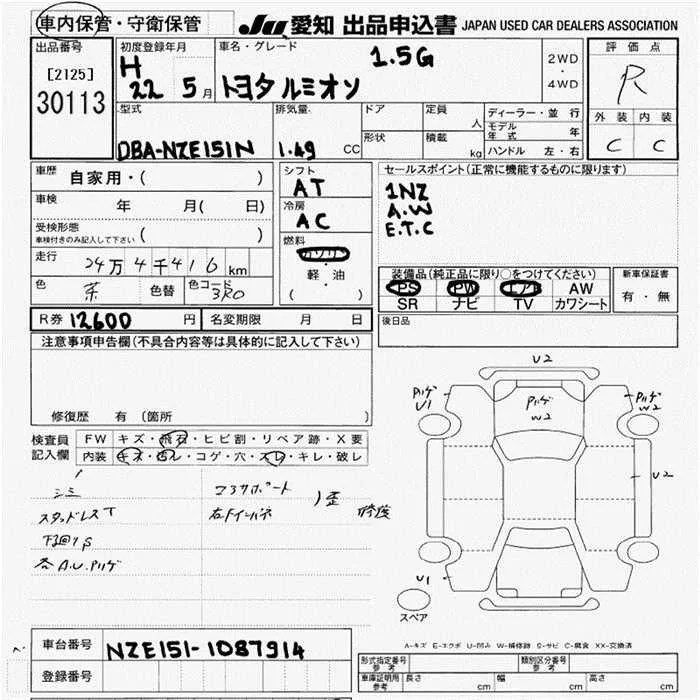 車内保管・守衛保管 JU 愛知 出品申込書 JAPAN USED CAR DEALERS ASSOCIATION
出品番号 初度登録年月 車名・グレード 評価点
[2125] H 1.5G 2WD
30113 22 5月 トヨタ ルミオン ・ R
4WD
型式 排気量 ドア 定員 人 ディーラー・並行 外装 内装
モデル年式 年
DBA-NZE151N 1.49 CC 形状 積載 kg ハンドル 左・右 C C
車歴 自家用・( ) シフト AT セールスポイント(正常に機能するものに限ります)
車検 年 月( 日) 冷房 AC 1NZ
A.W
受検形態 ( ) E.T.C
車検付きのみ記入して下さい 燃料 ガソリン
走行 24万4千416km ・ 装備品(純正品に限り○をつけてください) 新車保証書
軽・油 PS PW エアB AW 有・無
色 茶 色替 色コード 3R0 ( ) SR ナビ TV カワシート
R券 12600円 名変期限 月 日 後日品
注意事項申告欄(不具合内容等は具体的に記入して下さい)
修復歴 有 (箇所 )
検査員 FW キズ・飛石・ヒビ割・リペア跡・X要
記入欄 内装 キズ・汚レ・コゲ・穴・スレ・キレ・破レ
シミ コアサポート
スタッドレスT 右Fインパネ )歪 修復
下廻りS
各A.U.ハゲ
U2
ハゲ U1
ハゲ W2
ハゲ W2
U2
U1
スペア
A-キズ E-エクボ U-凹み W-補修跡 S-サビ C-腐食 XX-交換済
車台番号 NZE151-1087914
登録番号
形式指定番号 参考 類別区分番号 参考
車庫証明用 参考 長さ cm 幅 cm 高さ cm